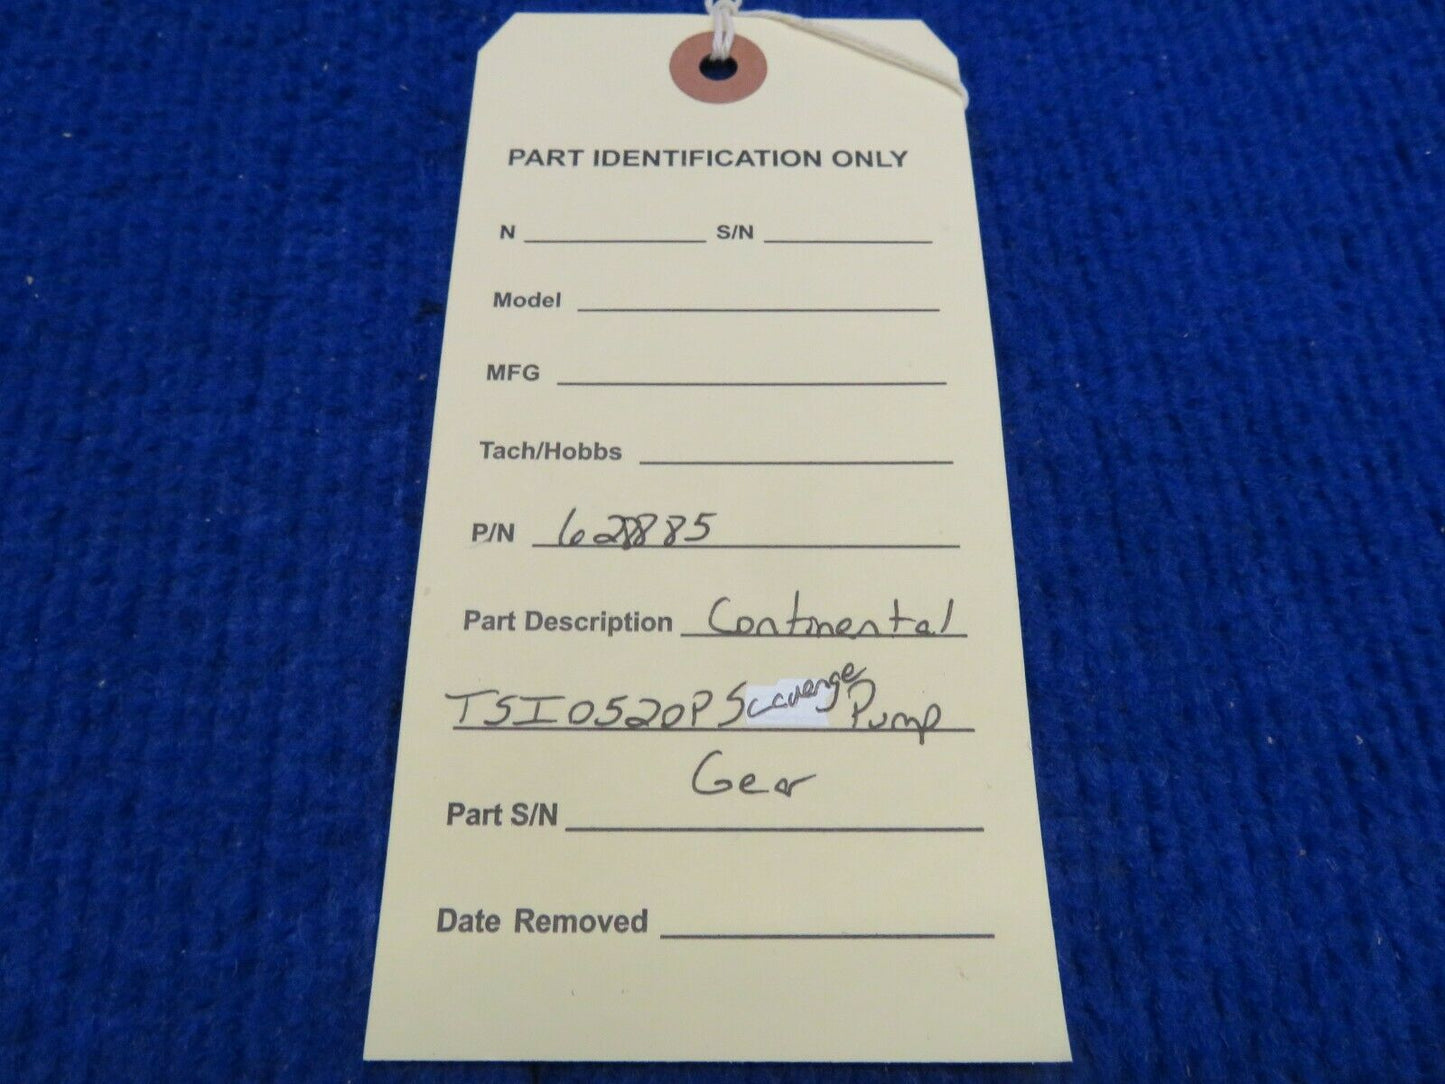 PART IDENTIFICATION ONLY
N S/N
Model
MFG
Tach/Hobbs
P/N 628885
Part Description Continental
TSIO520P Scavenge Pump
Gear
Part S/N
Date Removed